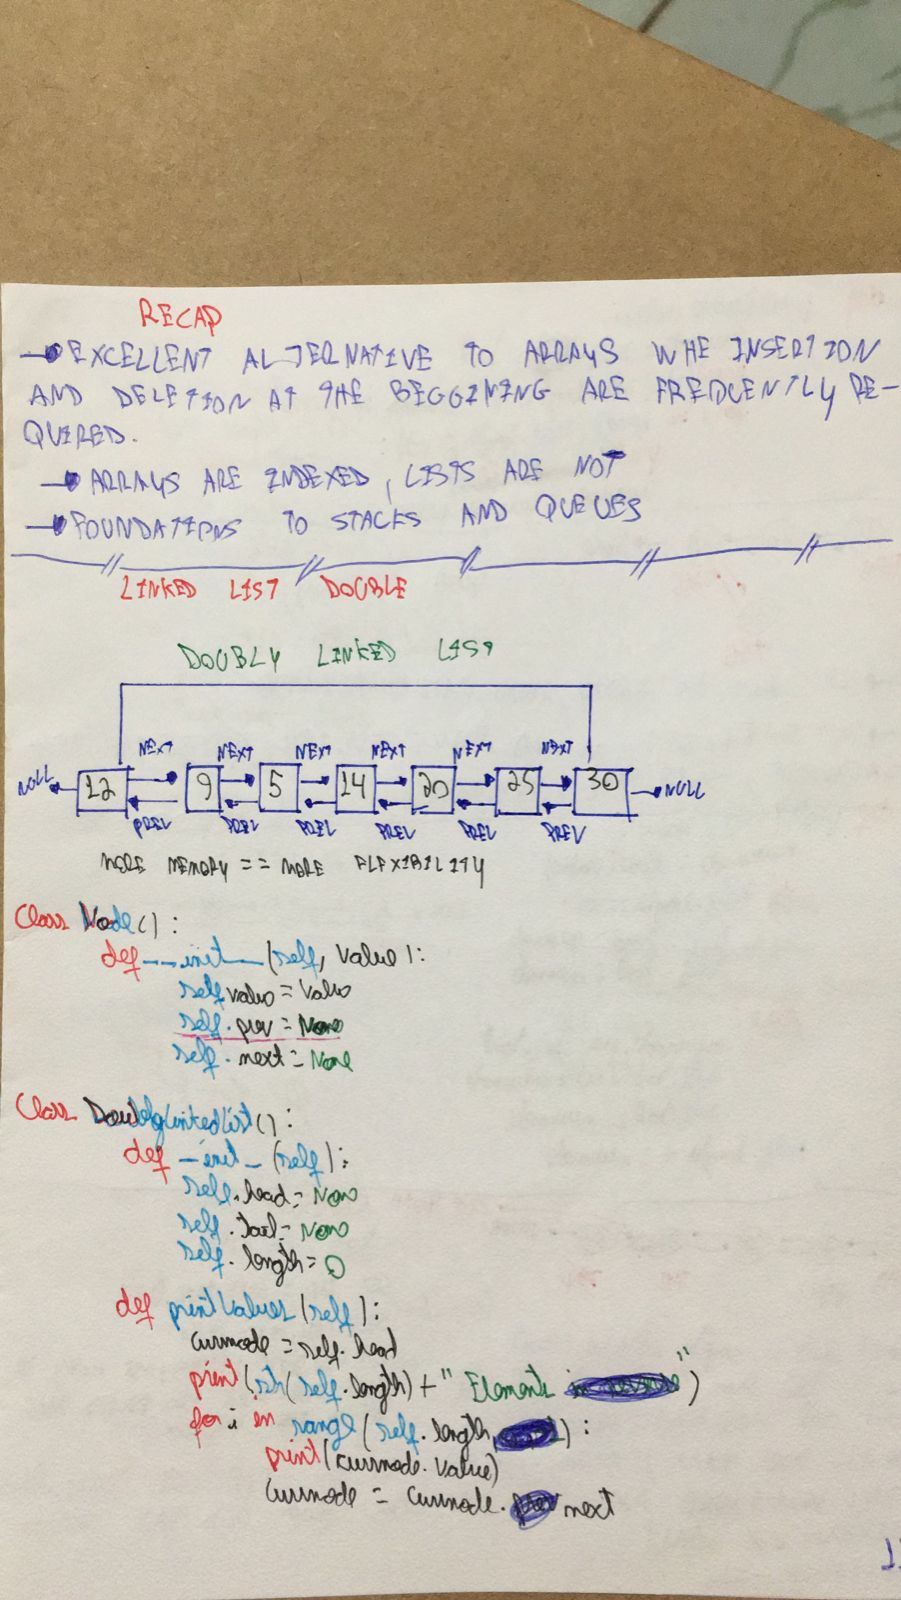 RECAP
EXCELLENT ALTERNATIVE TO ARRAYS WHE INSERTION
AND DELETION AT THE BEGGINING ARE FREQUENTLY RE-
QUIRED.
ARRAYS ARE INDEXED, LISTS ARE NOT
FOUNDATIONS TO STACKS AND QUEUES
LINKED LIST DOUBLE
DOUBLY LINKED LIST
NEXT NEXT NEXT NEXT NEXT NEXT
NULL 12 9 5 14 20 25 30 NULL
PREV PREV PREV PREV PREV PREV
MORE MEMORY == MORE FLEXIBILITY
Class Node():
def __init__(self, value):
self value = value
self.prev = None
self.next = None
Class DoublyLinkedList():
def _init_(self):
self.head = None
self.tail = None
self.length = 0
def printValues(self):
currnode = self.head
print(str(self.length) + " Elements ")
for i in range(self.length, ):
print(currnode.value)
currnode = currnode. next